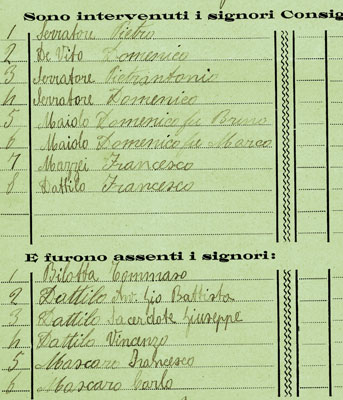 Sono intervenuti i signori Consig
1 Serratore Pietro
2 De Vito Domenico
3 Serratore Pietrantonio
4 Serratore Domenico
5 Maiolo Domenico fu Bruno
6 Maiolo Domenico fu Marco
7 Mazzei Francesco
8 Dattilo Francesco
E furono assenti i signori:
1 Bilotta Tommaso
2 Dattilo Avv. Gio Battista
3 Dattilo Sacerdote Giuseppe
4 Dattilo Vincenzo
5 Mascaro Francesco
6 Mascaro Carlo